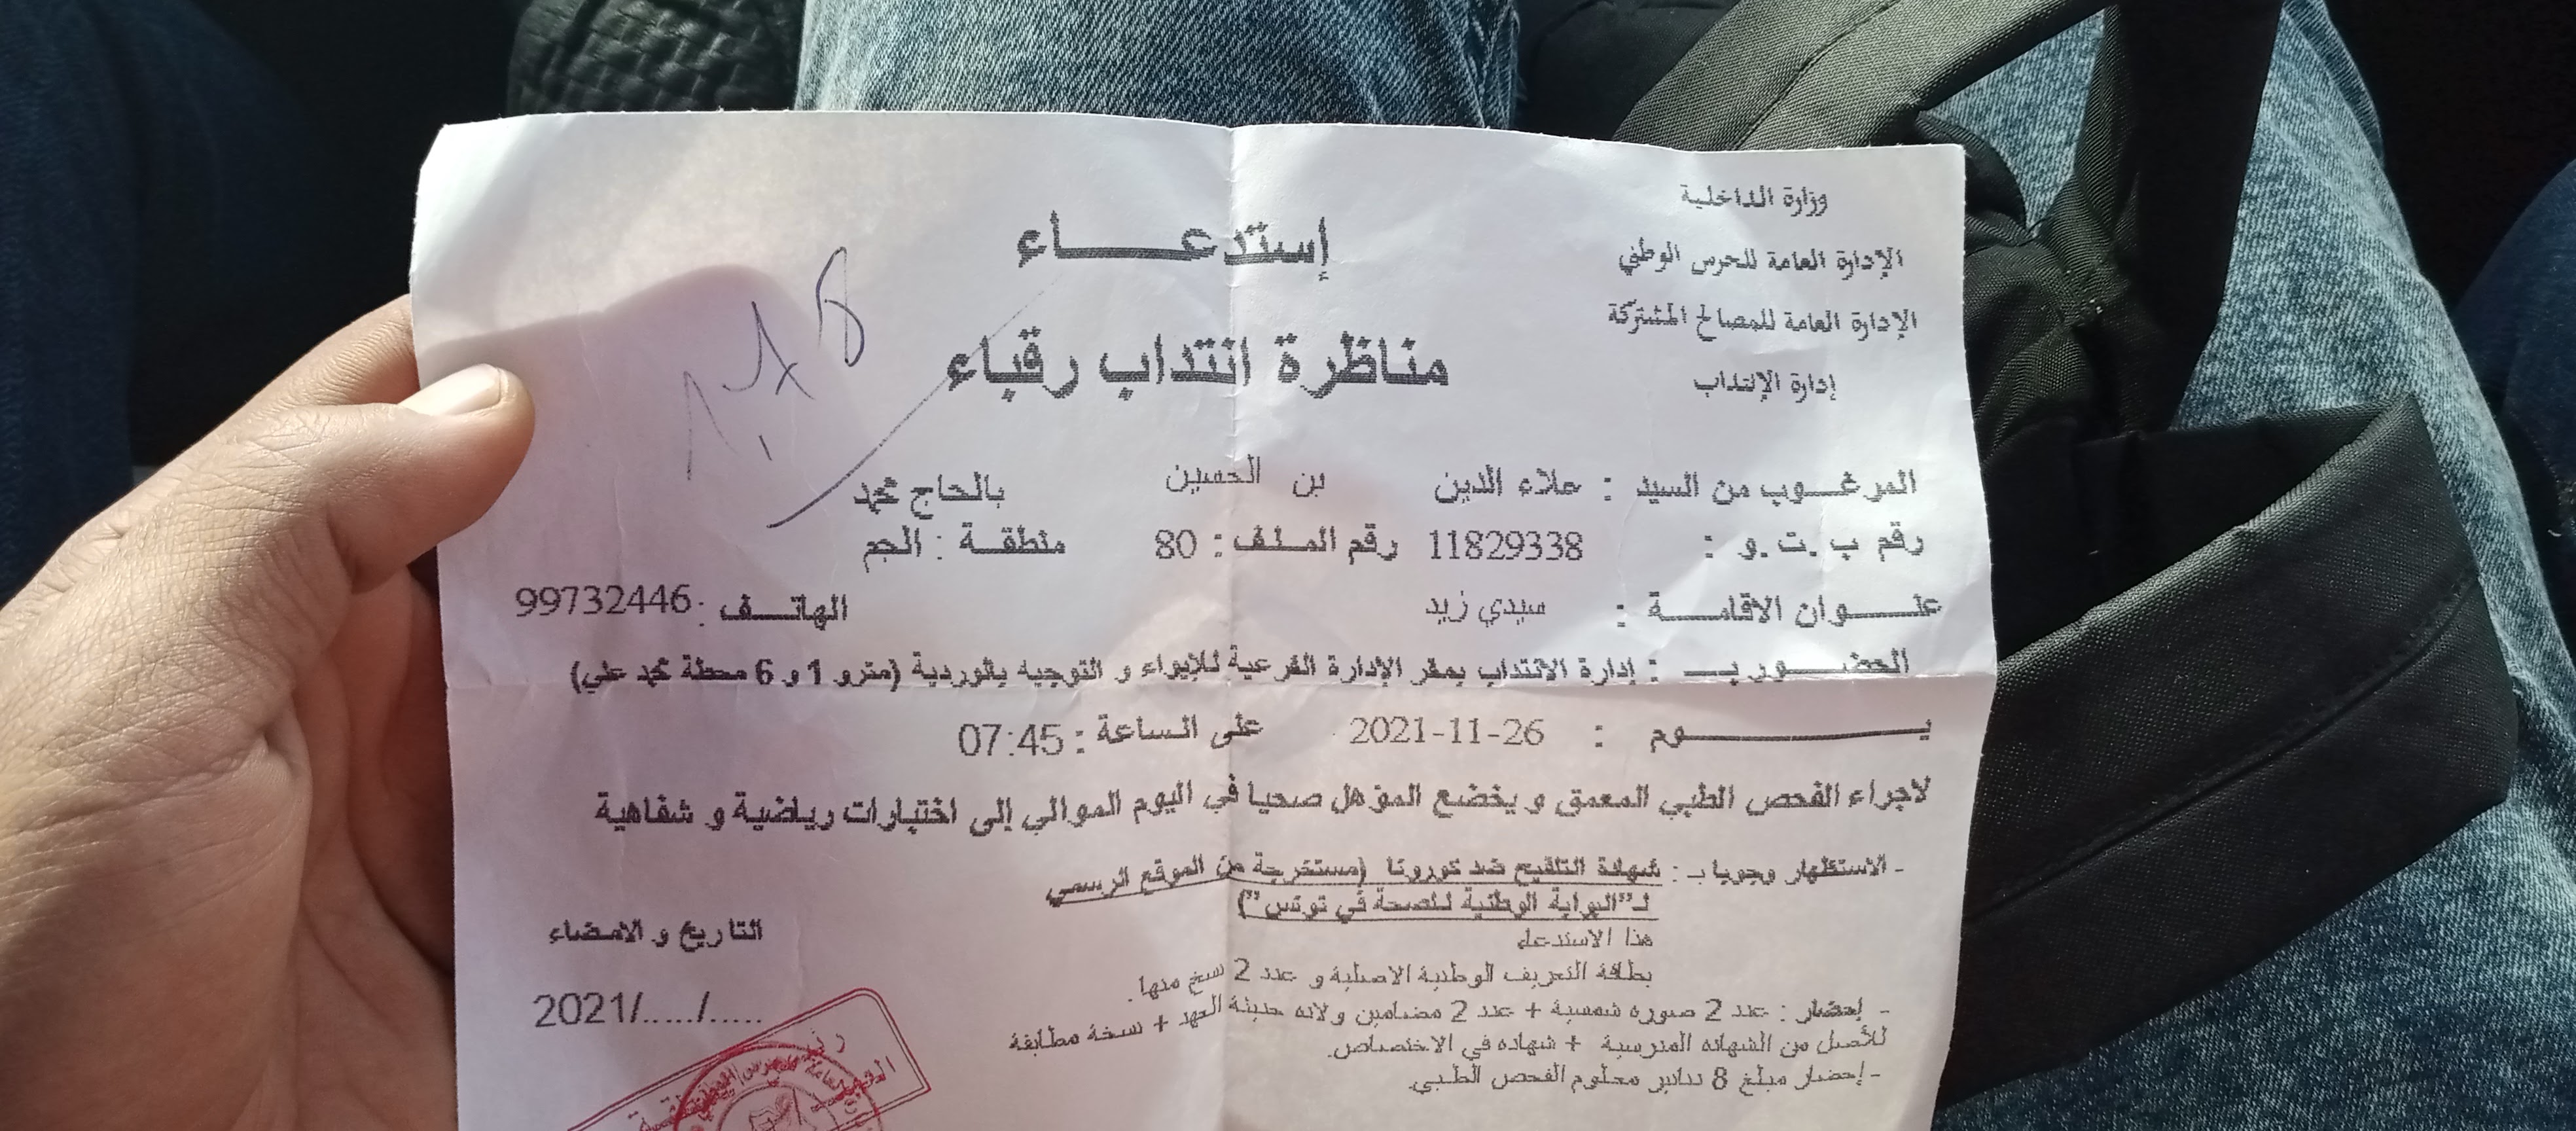 وزارة الداخلية
الإدارة العامة للحرس الوطني
الإدارة العامة للمصالح المشتركة
إدارة الإنتداب
إستدعـــــاء
مناظرة انتداب رقباء
المرغـوب من السيد : علاء الدين بن الحسين بالحاج محمد
رقم ب.ت.و : 11829338 رقم الملف : 80 منطقة : الجم
عنـــوان الاقامـــة : سيدي زيد الهاتف : 99732446
الحضـــور بـ : إدارة الانتداب بمقر الإدارة الفرعية للإيواء و التوجيه بالوردية (مترو 1 و 6 محطة محمد علي)
يـــــــوم : 2021-11-26 على الساعة : 07:45
لاجراء الفحص الطبي المعمق و يخضع المؤهل صحيا في اليوم الموالي إلى اختبارات رياضية و شفاهية
- الاستظهار وجوبا ب : شهادة التلقيح ضد كورونا (مستخرجة من الموقع الرسمي
لـ"البوابة الوطنية للصحة في تونس")
هذا الاستدعاء
بطاقة التعريف الوطنية الاصلية و عدد 2 نسخ منها.
- إحضار : عدد 2 صوره شمسية + عدد 2 مضامين ولاده حديثة العهد + نسخة مطابقة
للأصل من الشهاده المدرسية + شهاده في الاختصاص.
- إحضار مبلغ 8 دنانير معلوم الفحص الطبي.
التاريخ و الامضاء
2021/...../.....